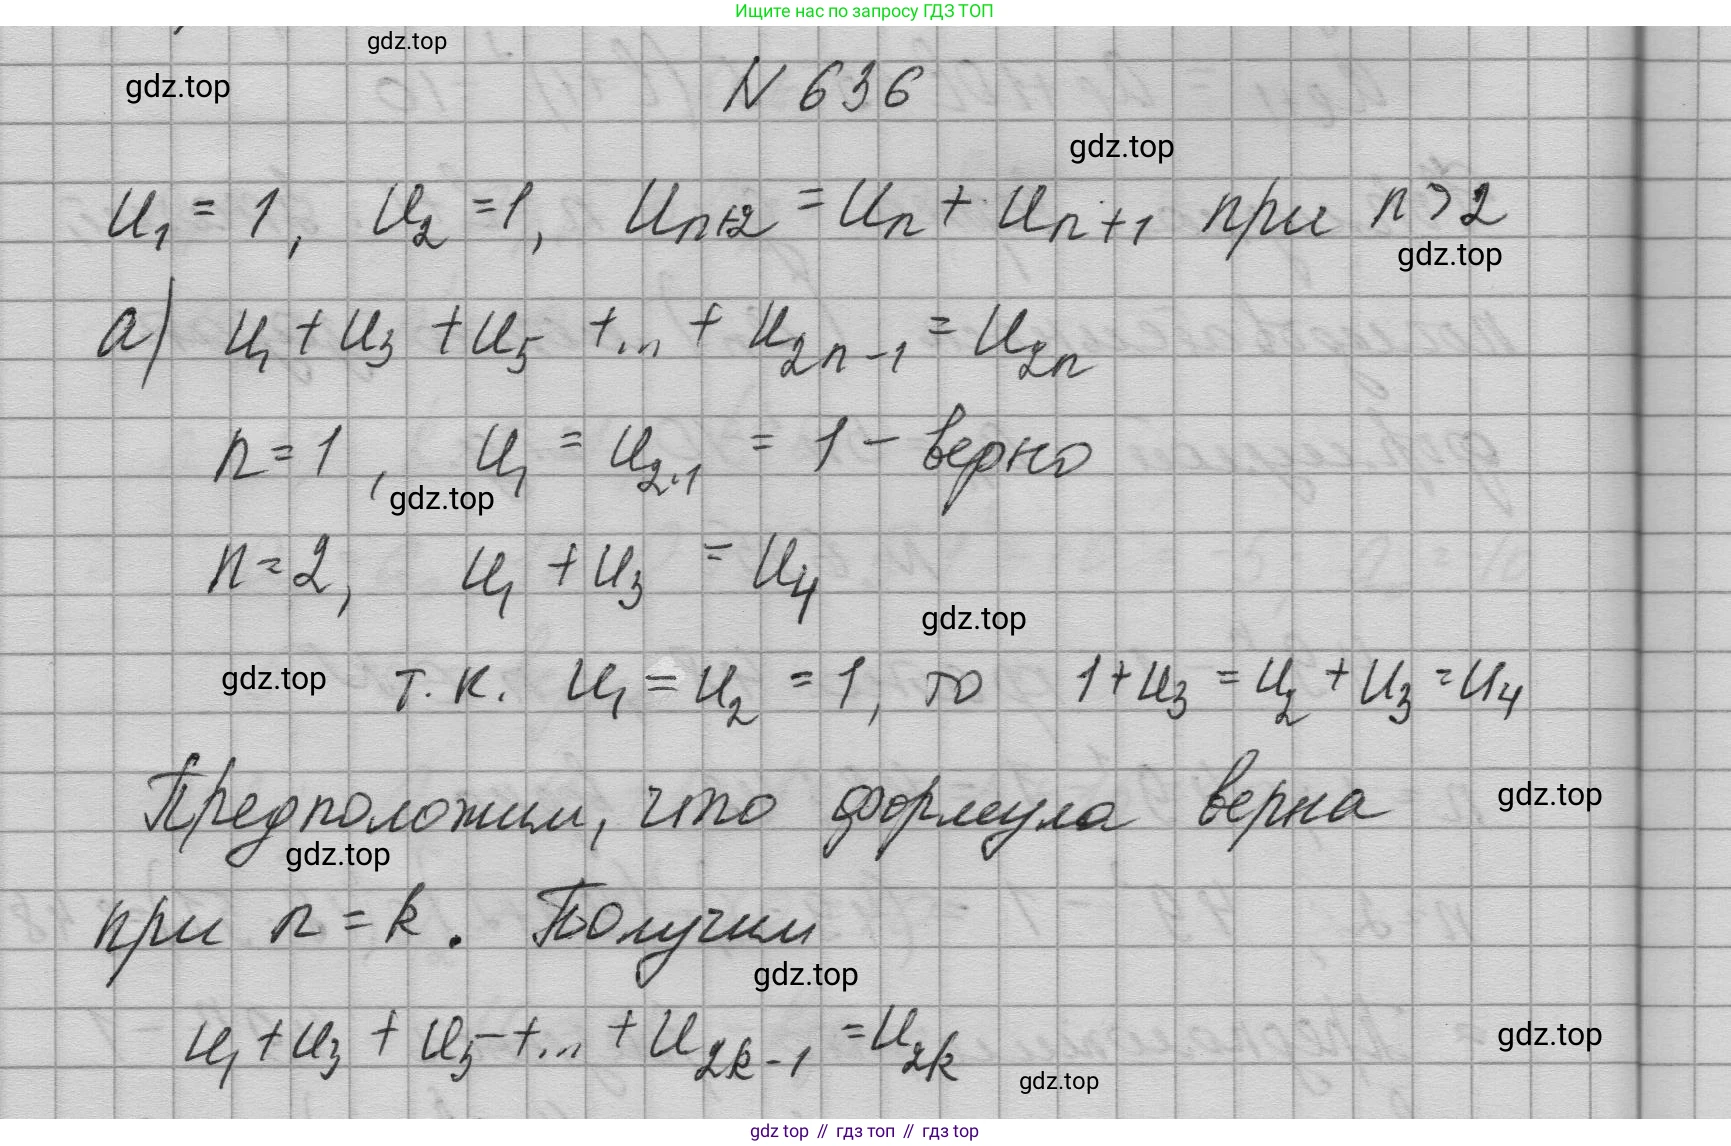 Ищите нас по запросу ГДЗ ТОП
gdz.top
gdz.top
N 636
gdz.top
u₁ = 1, u₂ = 1, uₙ₊₂ = uₙ + uₙ₊₁ при n > 2
gdz.top
а) u₁ + u₃ + u₅ + ... + u₂ₙ₋₁ = u₂ₙ
n = 1, u₁ = u₂.₁ = 1 – верно
gdz.top
n = 2, u₁ + u₃ = u₄
gdz.top
gdz.top
т.к. u₁ = u₂ = 1, то 1 + u₃ = u₂ + u₃ = u₄
Предположим, что формула верна
gdz.top
gdz.top
при n = k. Получим
gdz.top
u₁ + u₃ + u₅ + ... + u₂ₖ₋₁ = u₂ₖ
gdz.top
gdz.top
gdz top // гдз топ // гдз top